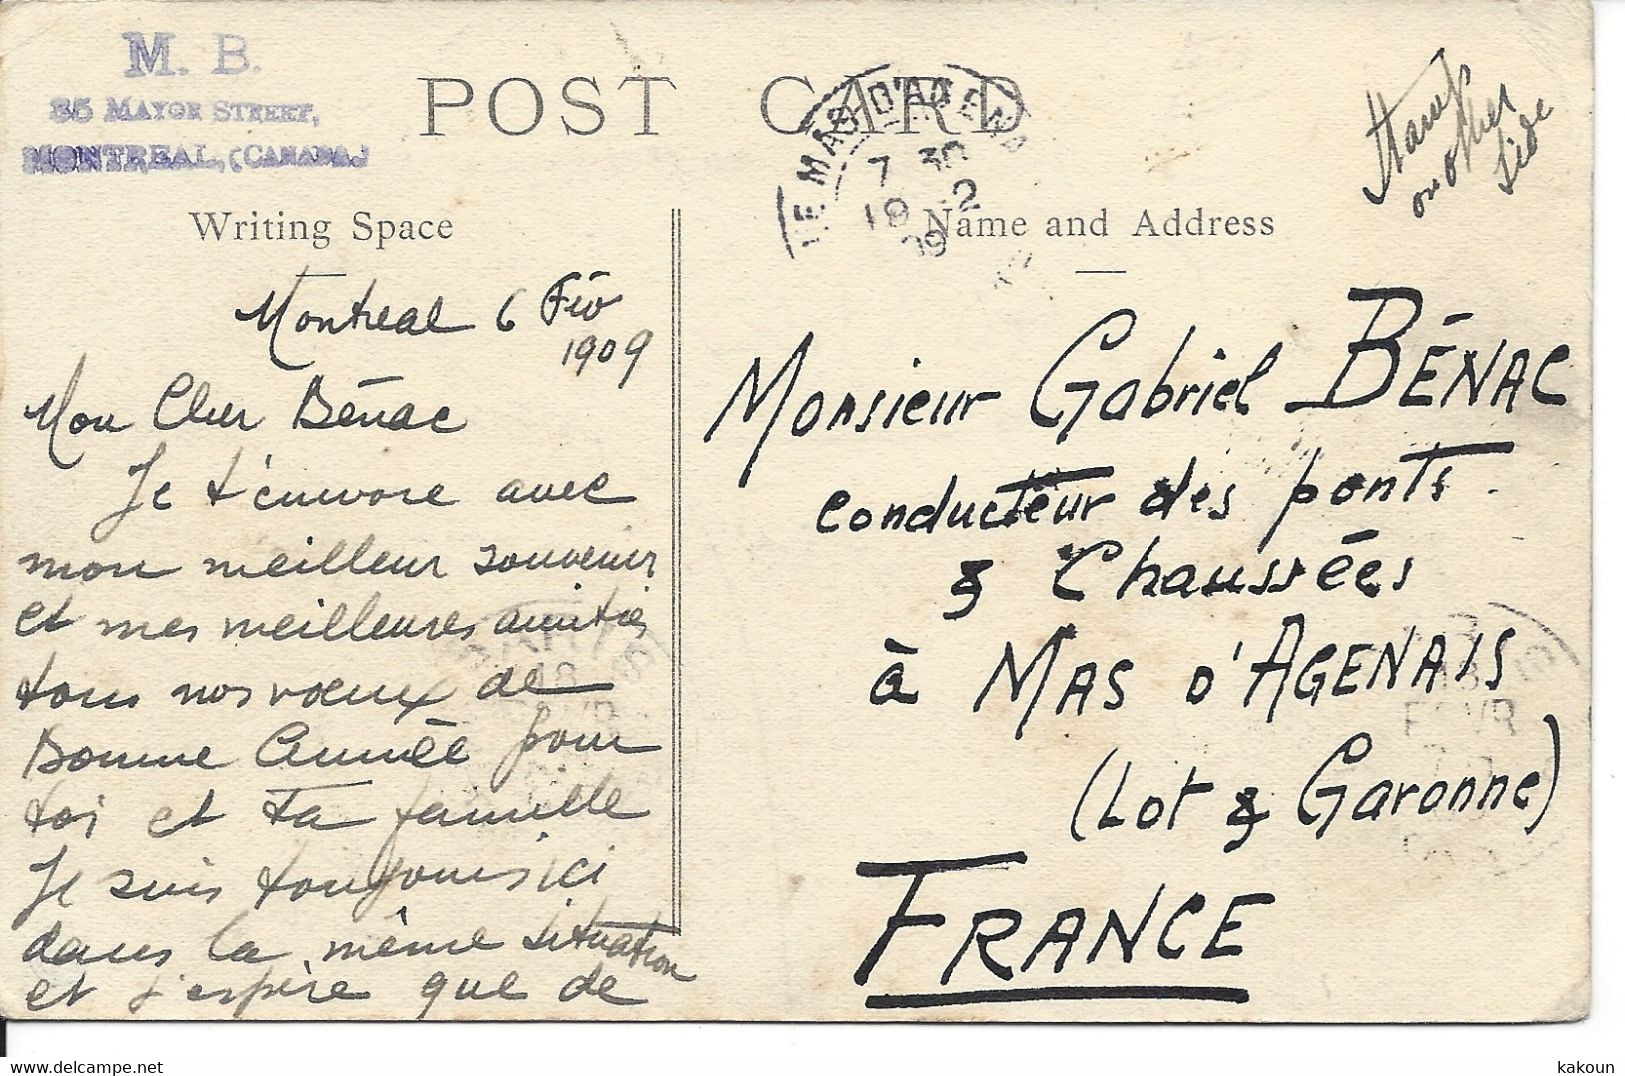 M. B.
35 MAYOR STREET,
MONTREAL, (CANADA.)
POST CARD
LE MAS D'AGENAIS
7 30
19 -2
09
Stamp
on other
side
Writing Space
Name and Address
Montreal 6 Fév
1909
Mon Cher Bénac
Je t'envoie avec
mon meilleur souvenir
et mes meilleures amitiés
tous nos vœux de
Bonne Année pour
toi et ta famille
Je suis toujours ici
dans la même situation
et j'espère que de
Monsieur Gabriel BÉNAC
conducteur des ponts
& Chaussées
à MAS D'AGENAIS
(Lot & Garonne)
FRANCE
PARIS
18
FEVR
kakoun
www.delcampe.net